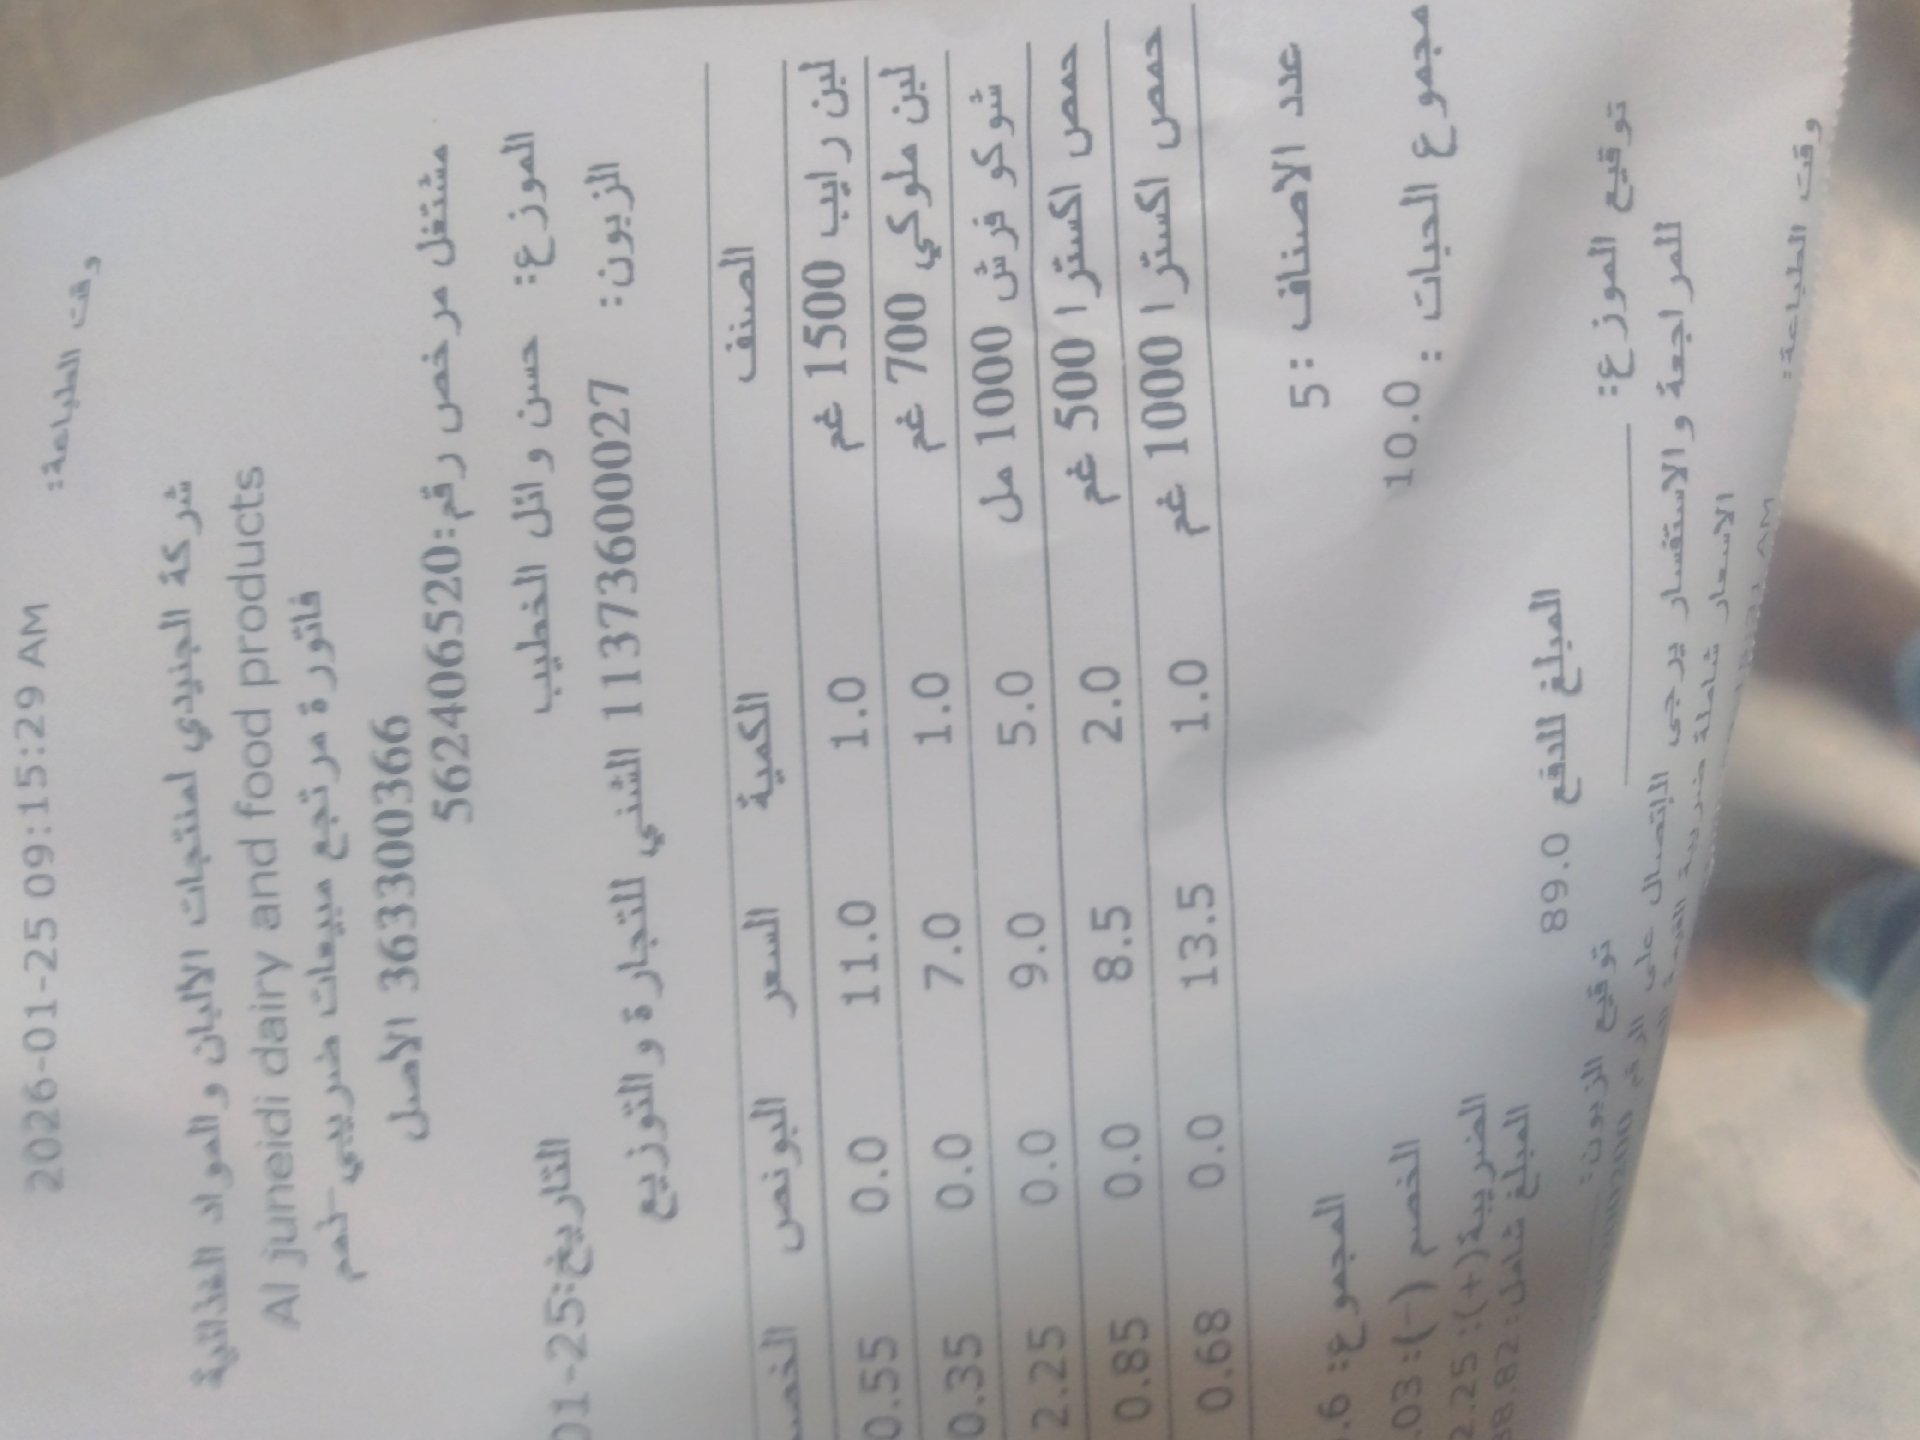 وقت الطباعة: 2026-01-25 09:15:29 AM
شركة الجنيدي لمنتجات الالبان والمواد الغذائية
Al juneidi dairy and food products
فاتورة مرتجع مبيعات ضريبي-لهم
363300366 الاصل
مشتغل مرخص رقم:562406520
الموزع: حسن وائل الخطيب
التاريخ:01-25
الزبون: 1137360002​7 الشني للتجارة والتوزيع
الصنف الكمية السعر البونص الخصم
لبن رايب 1500 غم 1.0 11.0 0.0 0.55
لبن ملوكي 700 غم 1.0 7.0 0.0 0.35
شوكو فرش 1000 مل 5.0 9.0 0.0 2.25
حمص اكسترا 500 غم 2.0 8.5 0.0 0.85
حمص اكسترا 1000 غم 1.0 13.5 0.0 0.68
عدد الاصناف : 5
المجموع: .6
مجموع الحبات : 10.0
الخصم (-): .03
الضريبة(+): 2.25
المبلغ شامل: 88.82
المبلغ للدفع 89.0
توقيع الموزع: توقيع الزبون:
للمراجعة والاستفسار يرجى الإتصال على الرقم
الاسعار شاملة ضريبة
وقت الطباعة: AM